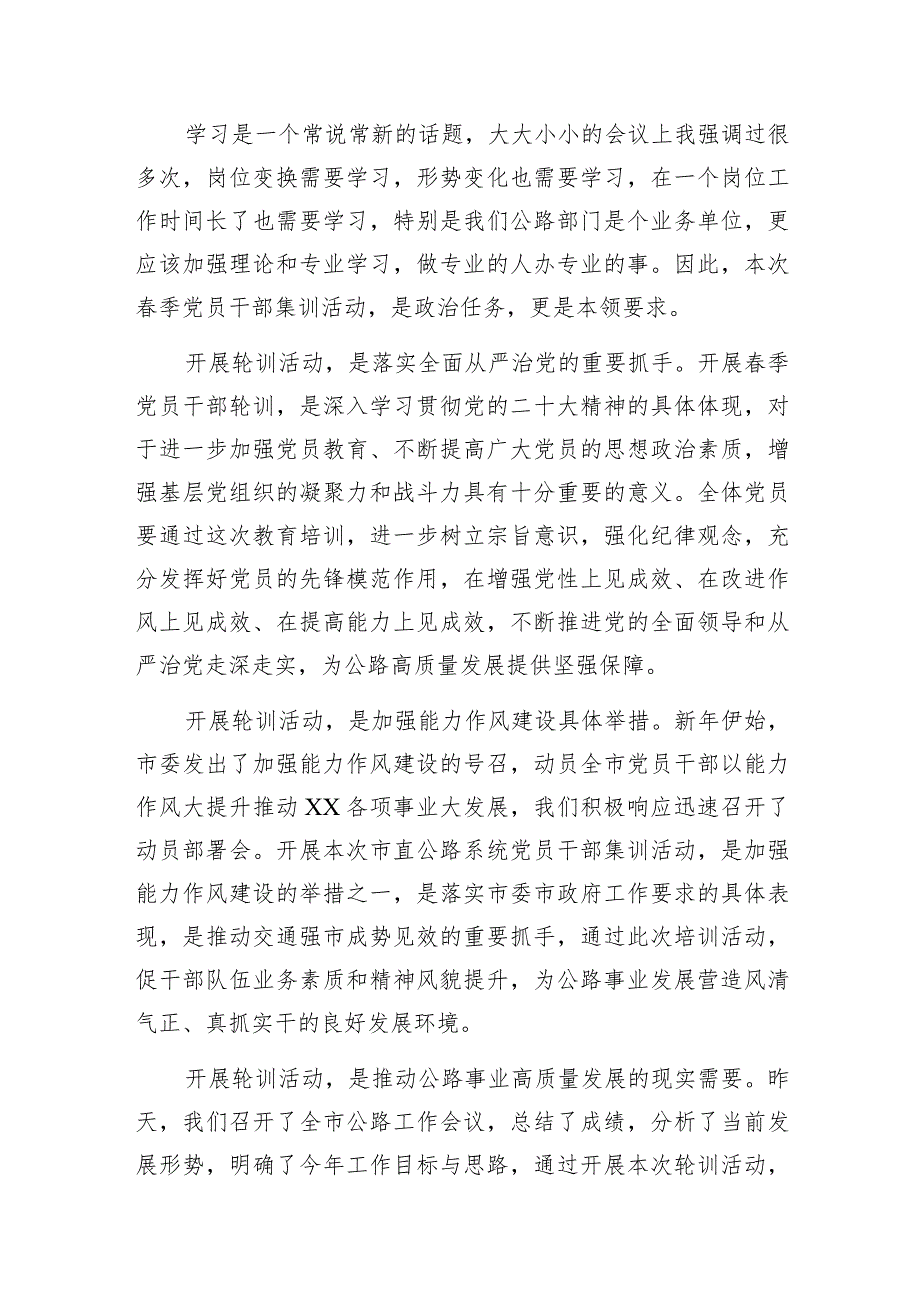 学习是一个常说常新的话题，大大小小的会议上我强调过很
多次，岗位变换需要学习，形势变化也需要学习，在一个岗位工
作时间长了也需要学习，特别是我们公路部门是个业务单位，更
应该加强理论和专业学习，做专业的人办专业的事。因此，本次
春季党员干部集训活动，是政治任务，更是本领要求。
开展轮训活动，是落实全面从严治党的重要抓手。开展春季
党员干部轮训，是深入学习贯彻党的二十大精神的具体体现，对
于进一步加强党员教育、不断提高广大党员的思想政治素质，增
强基层党组织的凝聚力和战斗力具有十分重要的意义。全体党员
要通过这次教育培训，进一步树立宗旨意识，强化纪律观念，充
分发挥好党员的先锋模范作用，在增强党性上见成效、在改进作
风上见成效、在提高能力上见成效，不断推进党的全面领导和从
严治党走深走实，为公路高质量发展提供坚强保障。
开展轮训活动，是加强能力作风建设具体举措。新年伊始，
市委发出了加强能力作风建设的号召，动员全市党员干部以能力
作风大提升推动 XX 各项事业大发展，我们积极响应迅速召开了
动员部署会。开展本次市直公路系统党员干部集训活动，是加强
能力作风建设的举措之一，是落实市委市政府工作要求的具体表
现，是推动交通强市成势见效的重要抓手，通过此次培训活动，
促干部队伍业务素质和精神风貌提升，为公路事业发展营造风清
气正、真抓实干的良好发展环境。
开展轮训活动，是推动公路事业高质量发展的现实需要。昨
天，我们召开了全市公路工作会议，总结了成绩，分析了当前发
展形势，明确了今年工作目标与思路，通过开展本次轮训活动，